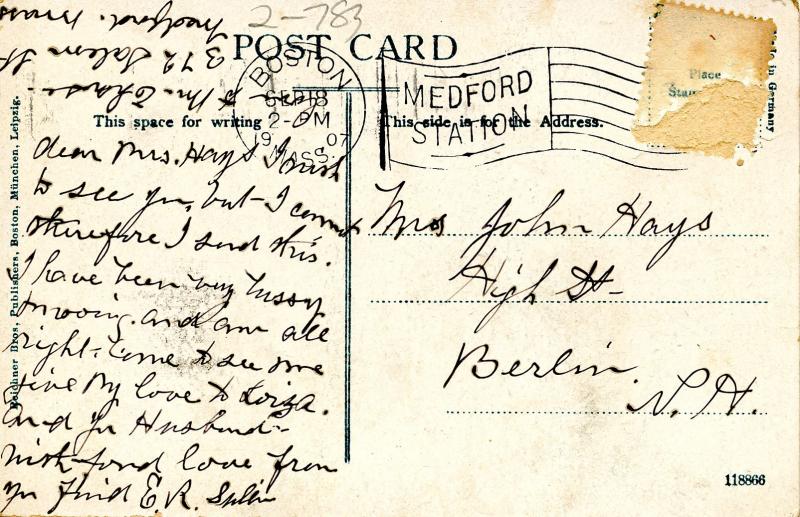 2-783
POST CARD
Medford. Mass
372 Salem St
BOSTON
SEP 18
2-PM
1907
MASS.
MEDFORD
STATION
Place
Made in Germany
This space for writing
This side is for the Address.
dear Mrs. Hays I wish
to see you, but I cannot
therefore I send this.
I have been very bussy
moving. and am all
right. Come to see me
Give My love to Loiza.
and your Husband-
with fond love from
your Frind E. R.
Mrs John Hays
High St-
Berlin.
N. H.
Reichner Bros, Publishers, Boston, München, Leipzig.
118866